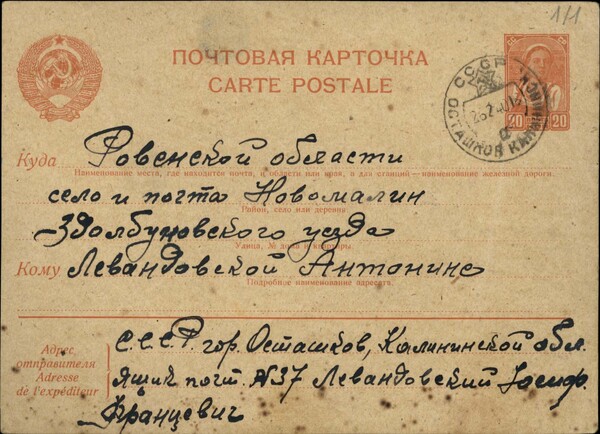 1/1
ПОЧТОВАЯ КАРТОЧКА
CARTE POSTALE
СССР
ОСТАШКОВ
20 20
Куда Ровенской области
Наименование места, где находится почта, и области или края, а для станций—наименование железной дороги.
село и почта Новомалин
Район, село или деревня.
Здолбуновского уезда
Улица, № дома и квартиры.
Кому Левандовской Антонине
Подробное наименование адресата.
Адрес отправителя
Adresse de l'expéditeur
С.С.С.Р. гор. Осташков, Калининской обл.
Ящик почт. N37 Левандовский Иосиф.
Францевич